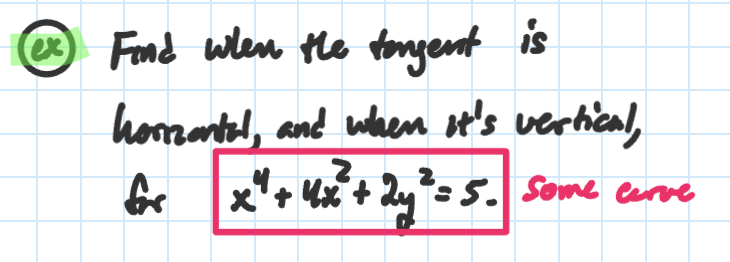 ex Find when the tangent is
horizontal, and when it's vertical,
for x⁴ + 4x² + 2y² = 5. some curve